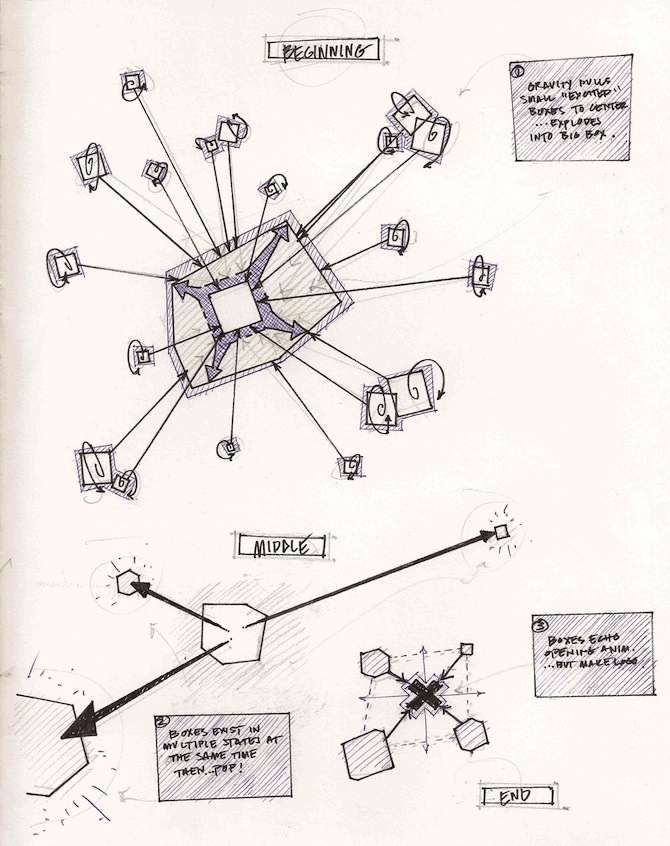 BEGINNING
1
GRAVITY PULLS
SMALL "EXCITED"
BOXES TO CENTER
...EXPLODES
INTO BIG BOX.
MIDDLE
3
BOXES ECHO
OPENING ANIM.
...BUT MAKE LOGO
2
BOXES EXIST IN
MULTIPLE STATES AT
THE SAME TIME
THEN...POP!
END